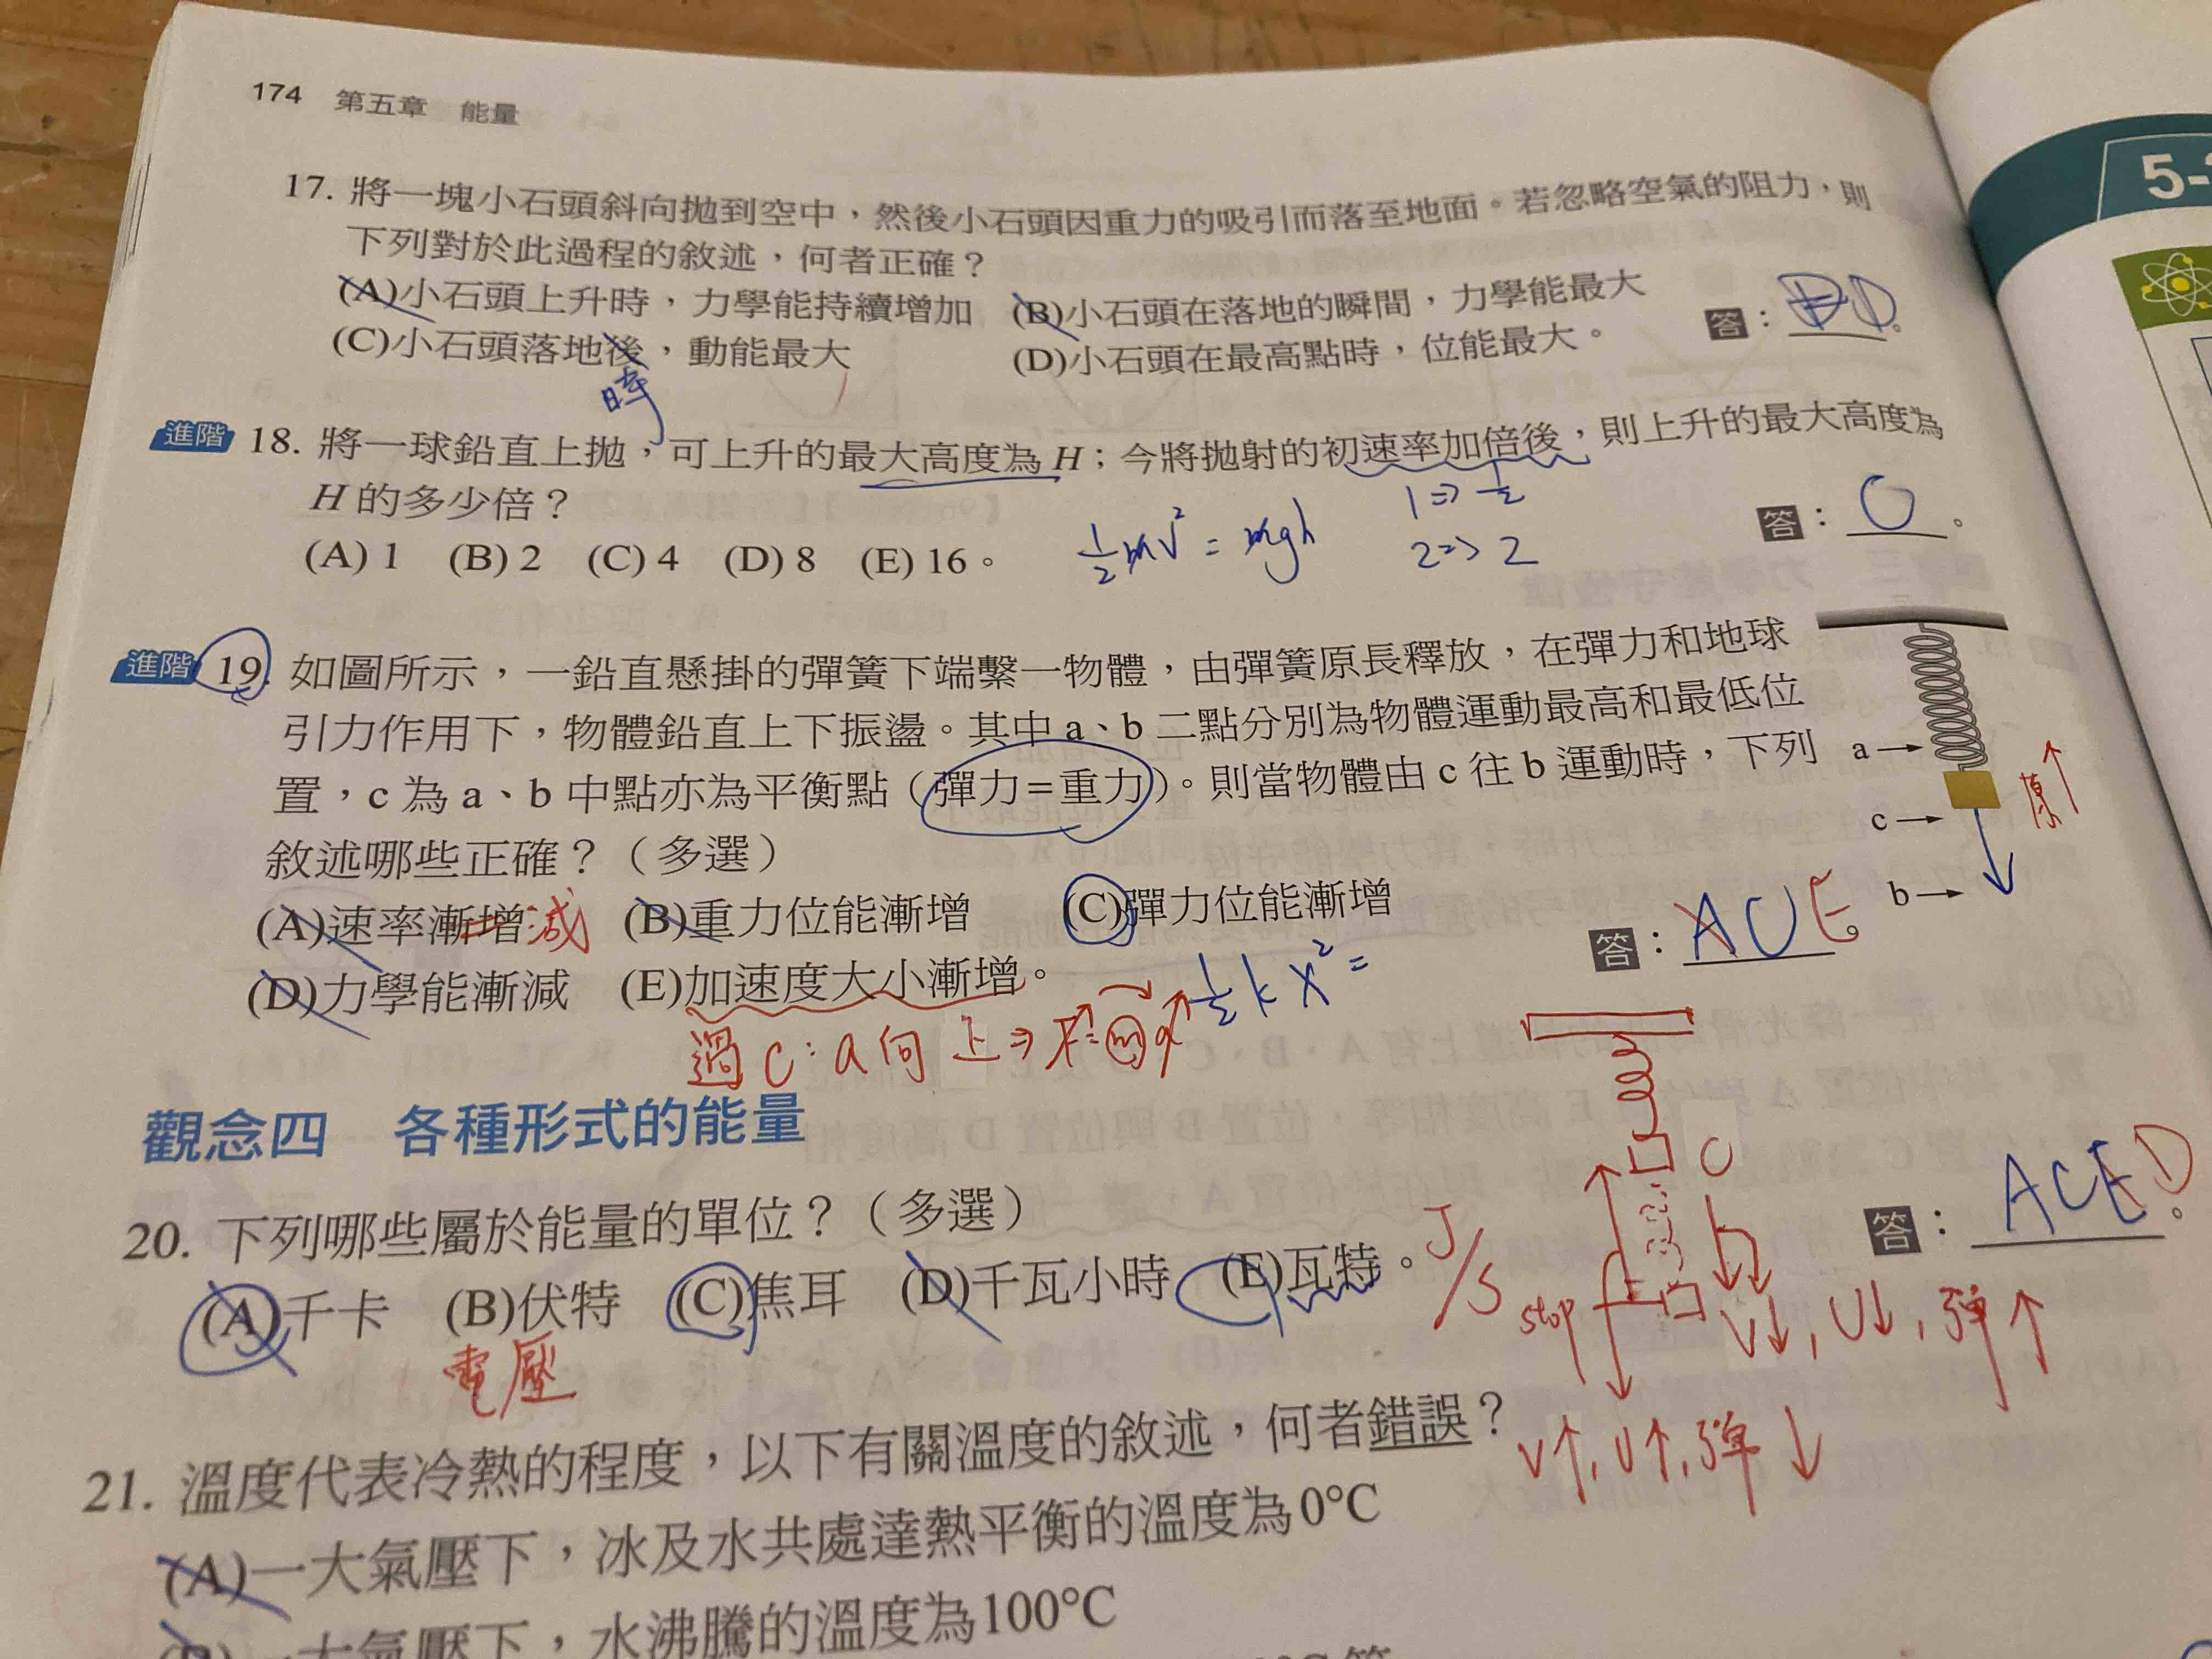 174 第五章 能量
5-
17. 將一塊小石頭斜向拋到空中，然後小石頭因重力的吸引而落至地面。若忽略空氣的阻力，則
下列對於此過程的敘述，何者正確？
(A)小石頭上升時，力學能持續增加 (B)小石頭在落地的瞬間，力學能最大
(C)小石頭落地後，動能最大 (D)小石頭在最高點時，位能最大。
時
答： D。
進階 18. 將一球鉛直上拋，可上升的最大高度為 H；今將拋射的初速率加倍後，則上升的最大高度為
H 的多少倍？
(A) 1 (B) 2 (C) 4 (D) 8 (E) 16。
½mv² = mgh
1 => ½
2 => 2
答： C。
進階 19. 如圖所示，一鉛直懸掛的彈簧下端繫一物體，由彈簧原長釋放，在彈力和地球
引力作用下，物體鉛直上下振盪。其中 a、b 二點分別為物體運動最高和最低位
置，c 為 a、b 中點亦為平衡點（彈力=重力）。則當物體由 c 往 b 運動時，下列
敘述哪些正確？（多選）
(A)速率漸增 減 (B)重力位能漸增 (C)彈力位能漸增
(D)力學能漸減 (E)加速度大小漸增。
答： ACE。
a
c
b
½kx² =
過 C：a 向上 => F = ma
C
b
stop
V↓, U↓, 彈↑
V↑, U↑, 彈↓
觀念四 各種形式的能量
20. 下列哪些屬於能量的單位？（多選）
(A)千卡 (B)伏特 (C)焦耳 (D)千瓦小時 (E)瓦特。
電壓
J/s
答： ACED。
21. 溫度代表冷熱的程度，以下有關溫度的敘述，何者錯誤？
(A)一大氣壓下，冰及水共處達熱平衡的溫度為0°C
(B)一大氣壓下，水沸騰的溫度為100°C